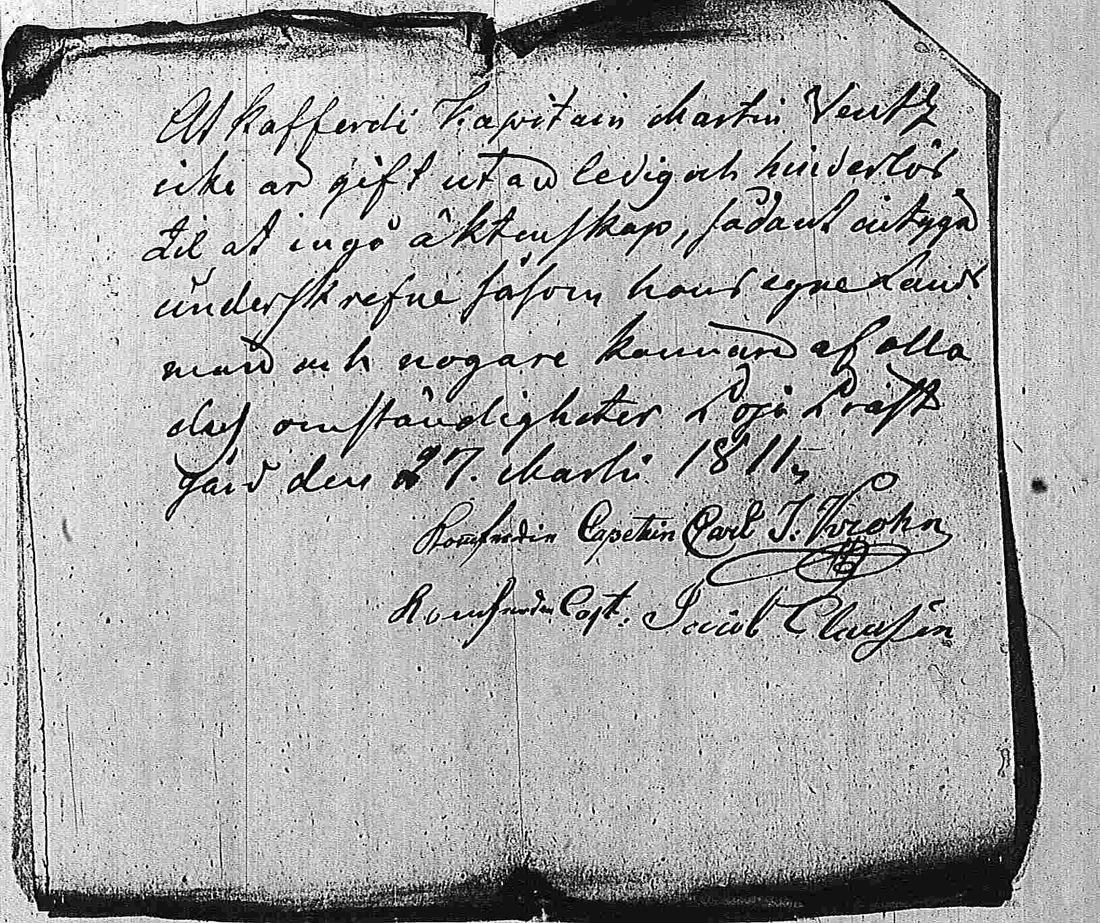 At Kofferdi Kapitain Martin Ventz
icke är gift utan ledig och hinderlös
til at ingå äktenskap, sådant intyga
underskrefne såsom hans egne Lands
män och nogare kännare af alla
dess omständigheter Lojo Präst
gård den 27. Martii 1811,
Koufardin Capetein Carl J. Krohn
Koufardin Capt. Jacob Claussen